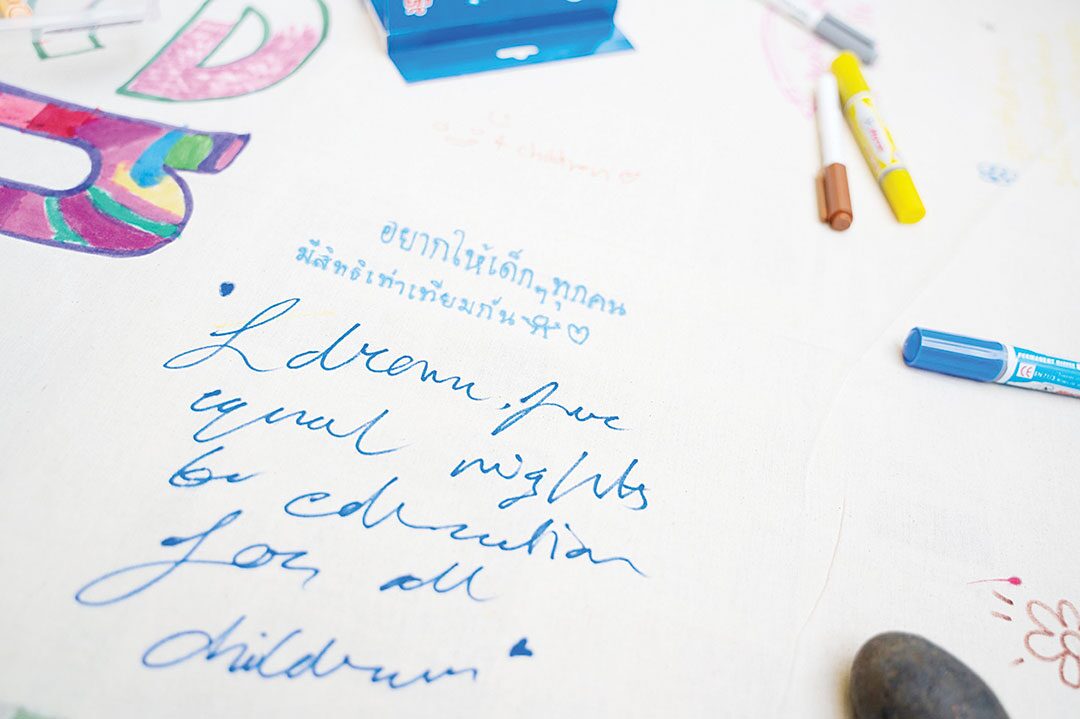 D
children
อยากให้เด็กๆทุกคน
มีสิทธิเท่าเทียมกัน
I dream for
equal rights
to education
for all
children
PERMANENT
CE EN 71/3